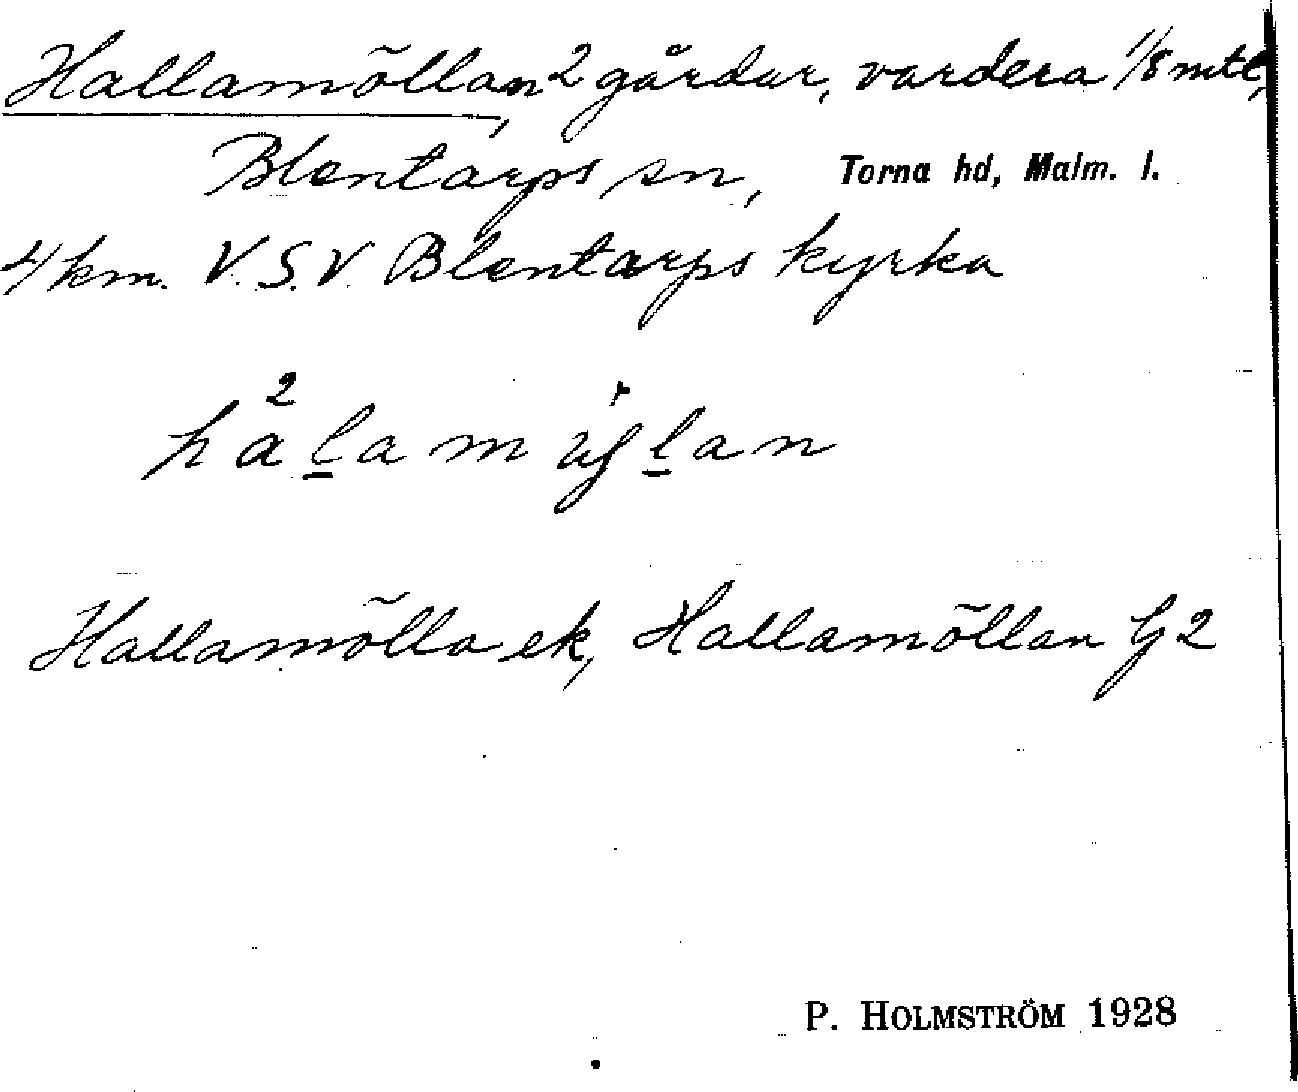 Hallamöllan, 2 gårdar, vardera 1/8 mtl,
Blentarps sn, Torna hd, Malm. l.
4 km. V.S.V. Blentarps kyrka
Hallamölla ek, Hallamöllan G 2
P. HOLMSTRÖM 1928